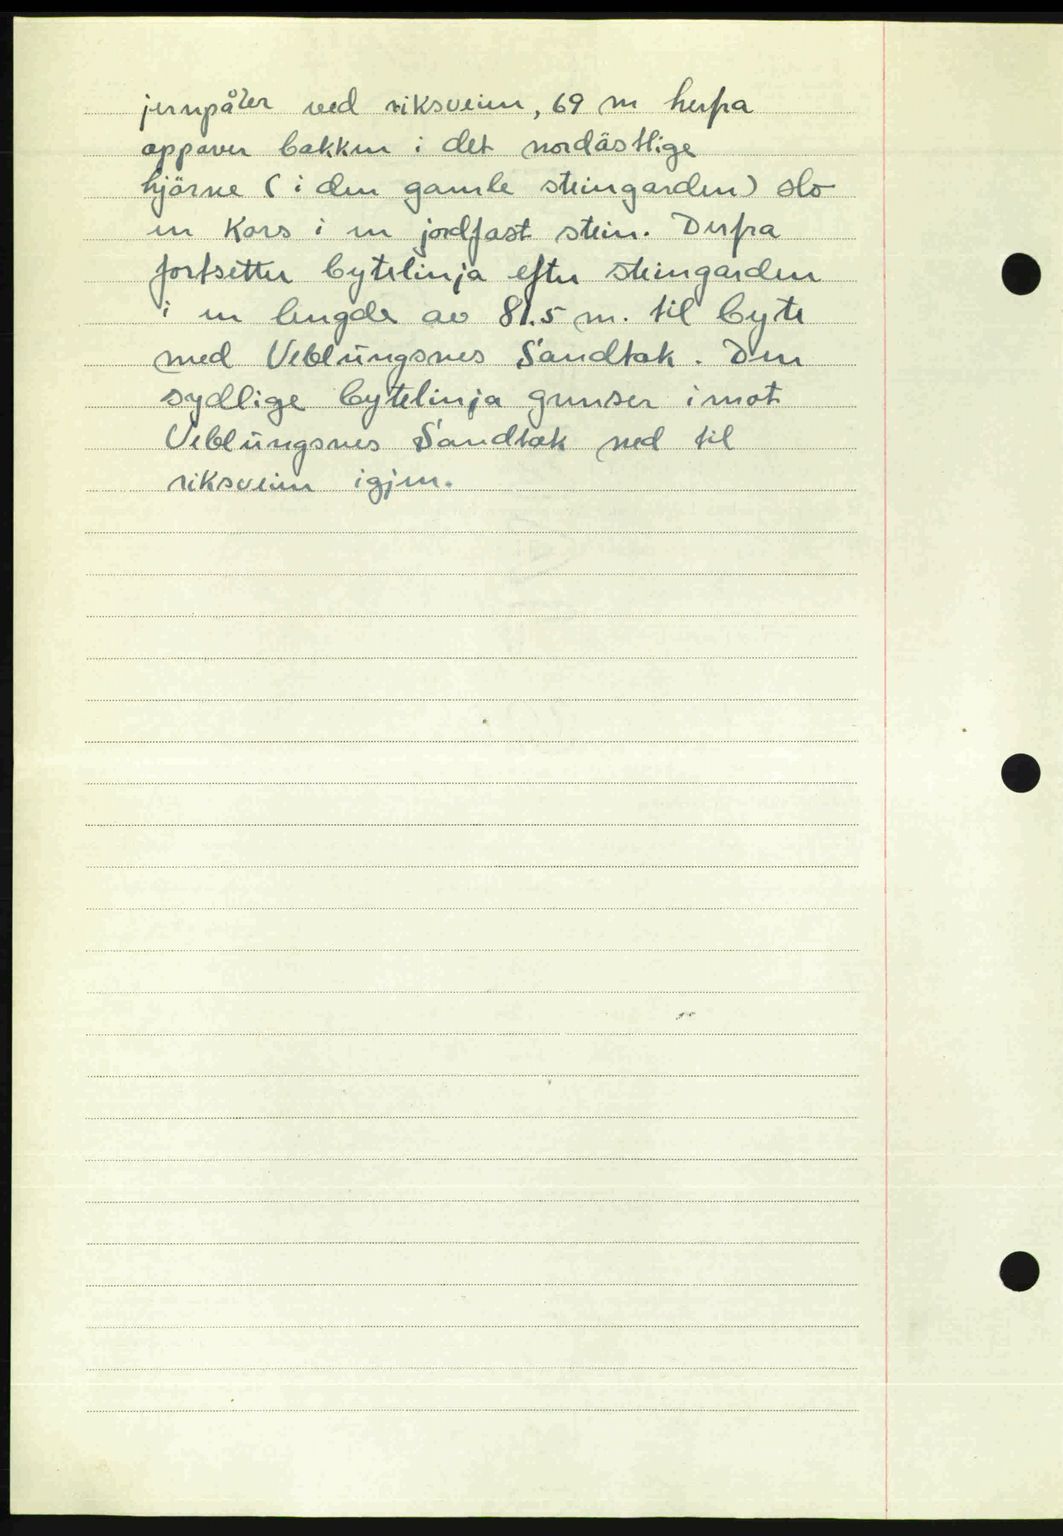 jernpåler ved riksveien, 69 m herfra
oppover bakken i det nordästlige
hjörne (i den gamle steingarden) slo
en kors i en jordfast stein. Derfra
fortsetter bytelinja efter steingarden
i en lengde av 81.5 m. til byte
med Veblungsnes Sandtak. Den
sydlige bytelinja grenser imot
Veblungsnes Sandtak ned til
riksveien igjen.